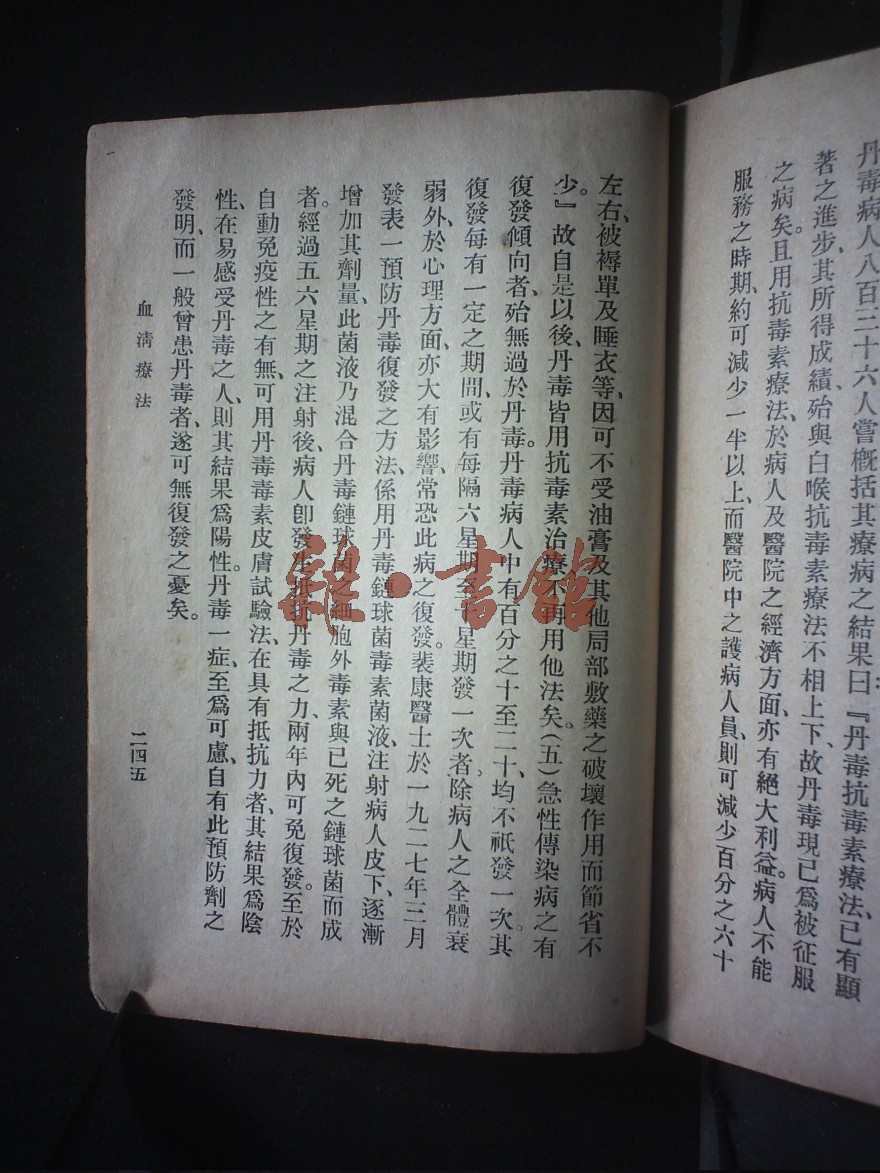 丹毒病人八百三十六人嘗概括其療病之結果曰『丹毒抗毒素療法、已有顯
著之進步、其所得成績、殆與白喉抗毒素療法不相上下、故丹毒現已爲被征服
之病矣。且用抗毒素療法、於病人及醫院之經濟方面、亦有絕大利益。病人不能
服務之時期、約可減少一半以上、而醫院中之護病人員、則可減少百分之六十
左右、被褥單及睡衣等、因可不受油膏及其他局部敷藥之破壞作用而節省不
少。』故自是以後、丹毒皆用抗毒素治療、不再用他法矣。(五)急性傳染病之有
復發傾向者、殆無過於丹毒。丹毒病人中有百分之十至二十、均不祇發一次。其
復發每有一定之期間、或有每隔六星期至 星期發一次者、除病人之全體衰
弱外、於心理方面、亦大有影響、常恐此病之復發。裴康醫士於一九二七年三月
發表一預防丹毒復發之方法、係用丹毒鏈球菌毒素菌液、注射病人皮下、逐漸
增加其劑量、此菌液乃混合丹毒鏈球菌之細胞外毒素與已死之鏈球菌而成
者。經過五六星期之注射後、病人卽發生抵抗丹毒之力、兩年內可免復發。至於
自動免疫性之有無、可用丹毒毒素皮膚試驗法、在具有抵抗力者、其結果爲陰
性、在易感受丹毒之人、則其結果爲陽性。丹毒一症、至爲可慮、自有此預防劑之
發明、而一般曾患丹毒者、遂可無復發之憂矣。
血清療法
二四五
雜·書館